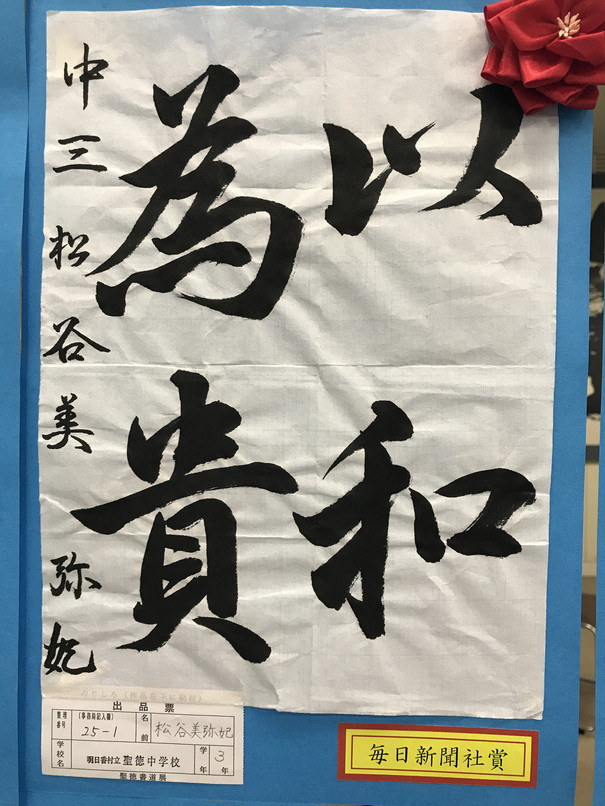 以和
為貴
中三 松谷美弥妃
のりしろ(作品を下に貼付)
出品票
整理番号 (事務局記入欄) 25-1 名前 松谷美弥妃
学校名 明日香村立 聖徳中学校 学年 3年
聖徳書道展
毎日新聞社賞